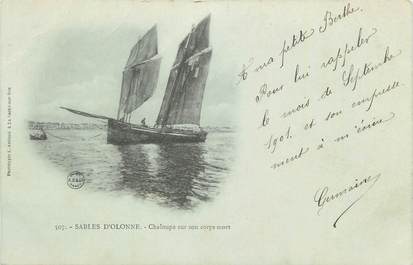 A ma petite Berthe.
Pour lui rappeler
le mois de Septembre
1901. et son empresse
ment à m'écrire
Germaine
507. - SABLES D'OLONNE. - Chaloupe sur son corps mort